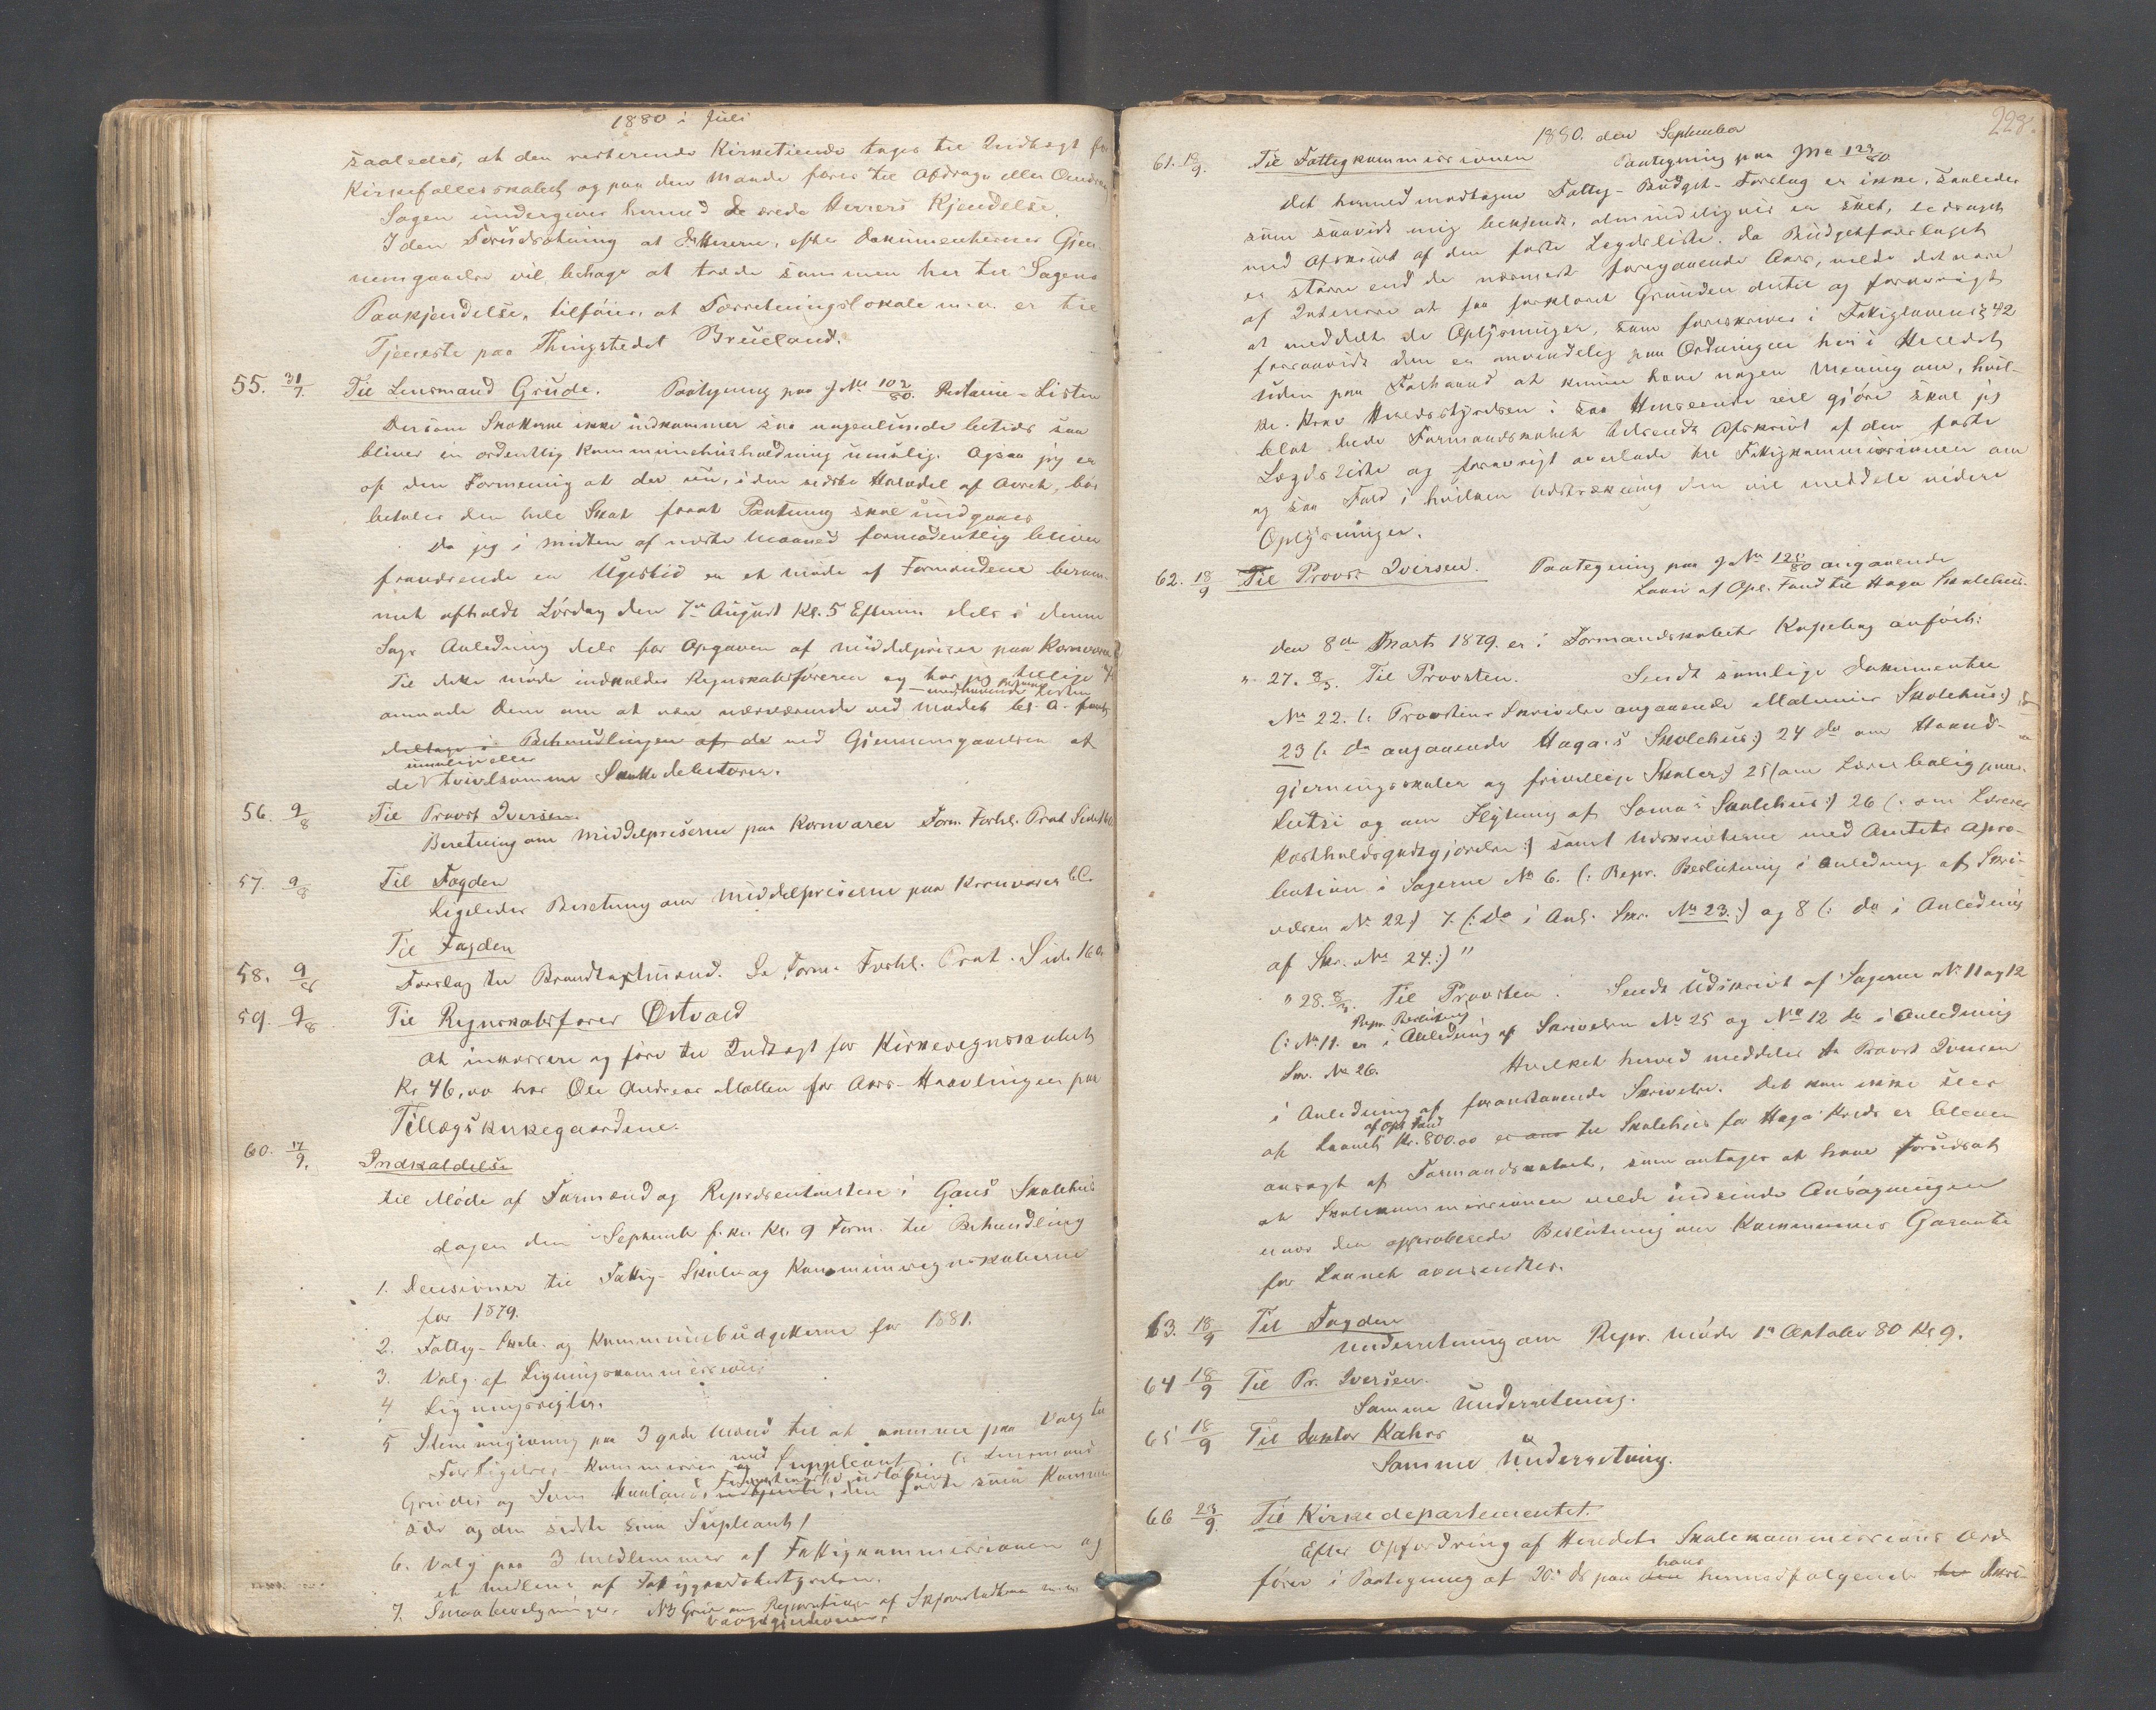 1880 i Juli
saaledes, at den resterende Kirketiende tages til Indtægt for
Kirkefællesskabet og paa den Maade føres til Afdrage eller
Sagen undergives hermed de ærede Herrers Kjendelse.
I den Forudsætning at D'Herrer, efter Dokumenternes Gjen-
nemgaaelse vil behage at træde sammen her til Sagens
Paakjendelse, tilføies, at Forretningslokale er til
Tjeneste paa Thingstedet Brueland.
55. 31/7. Til Lensmand Grude. Paategning paa J. No 102/80. Restance-Listen
Dersom Skatterne ikke indkommer saa nogenlunde betids saa
bliver en ordentlig Kommunehusholdning umulig. Ogsaa jeg er
af den Formening at der nu, i den sidste Halvdel af Aaret, bør
betales den hele Skat foråt Pantning skal undgaaes
Da jeg i Midten af næste Maaned formodentlig bliver
fraværende en Ugestid er et Møde af Formændene beram-
met afholdt Lørdag den 7de August Kl. 5 Efterm. dels i denne
Sags Anledning dels for Opgaven af Middelpriser paa Kornvarer
Til dette Møde indkaldes Regnskabsføreren og har jeg tillige
anmode Dem om at være nærværende ved Mødet bl. a. for at
medhavende Listen
deltage i Behandlingen af de ved Gjennemgaaelsen af
umulige eller
de tvivlsomme Skattedebitorer.
56. 9/8 Til Provst Iversen.
Beretning om Middelpriserne paa Kornvarer Form. Forhl. Prot Side 160
57. 9/8 Til Fogden
Ligeledes Beretning om Middelpriserne paa Kornvarer
Til Fogden
58. 9/8 Forslag til Brandtaxtmænd. Se Form. Forhl. Prot. Side 160
59. 9/8 Til Regnskabsfører Østvold
At inkassere og føre til Indtægt for Kirkeregnskabet
Kr 46,00 hos Ole Andreas Mallen for Aars-Haavlingen paa
Tillægskirkegaardene.
60. 17/9. Indkaldelse
til Møde af Formænd og Repræsentantere i Gans Skolehus
dagen den September f. kl. 9 Form. til Behandling
1. Decisioner til Fattig- Skole og Kommuneregnskaberne
for 1879.
2. Fattig- Skole- og Kommunebudgetterne for 1881.
3. Valg af Ligningskommission
4 Ligningsregler.
5 Stemmgivning paa 3 gode Mænd til at komme paa Valg til
Forligelses-Kommissær med Suppleant. (: Lensmand
Grudes og Sven Hanlands Funktionstid udløben, den første som Kommis-
sær og den sidste som Supleant)
6. Valg paa 3 Medlemmer af Fattigkommissionen og
et Medlem af
7. Smaabevilgninger.
228.
1880. den September
61. 18/9. Til Fattigkommissionen Paategning paa J No 123/80
Det hermed modtagne Fattig-Budget-Forslag er ikke, saaledes
som saavidt mig bekjendt, almindeligvis er skeet, ledsaget
med Afskrivt af den faste Lægdsliste. Da Budgetforslaget
er større end de nærmest foregaaende Aars, vilde det være
af Interesse at faa forklaret Grunden dertil og forøvrigt
at meddelt de Oplysninger, som foreskrives i Fattiglovens § 42
forsaavidt den er anvendelig paa Ordningen her i Heredet
Uden paa Forhaand at kunne have nogen Mening om, hvil-
ke Krav Heredsstyrelsen i saa Henseende vil gjøre skal jeg
blot bede Formandskabet tilsendt Afskrivt af den faste
Lægdsliste og forøvrigt overlade til Fattigkommissionen om
og saa Fald i hvilken Udstrækning den vil meddele videre
Oplysninger.
62. 18/9 Til Provst Iversen. Paategning paa J No 125/80 angaaende
Laan af Opl. Fond til Haga Skolehus.
den 8de Marts 1879. er i Formandskabets Kopibog anført:
" 27. 8/3. Til Provsten. Sendt samtlige Dokumenter
No 22. (: Provstens Skrivelse angaaende Malmeims Skolehus:)
23 (: do angaaende Haga's Skolehus:) 24 do om Haand-
gjerningsskoler og frivillige Skoler:) 25 (om Lærerbolig paa
Lutsi og om Flytning af Soma's Skolehus:) 26 (: om Lærer
Kostholdsgodtgjørelse:) samt Udskrivterne med Amtets Apro-
bation i Sagerne No 6. (: Repr. Beslutning i Anledning af Skri-
velsen No 22:) 7. (: do i Anl. Skr. No 23.:) og 8 (: do i Anledning
af Skr. No 24.:) "
" 28. 8/3. Til Provsten. Sendt Udskrivt af Sagerne No 11 og 12
Repr. Beslutning
(: No 11. er i Anledning af Skrivelsen No 25 og No 12 do i Anledning
Skr. No 26. Hvilket herved meddeles Hr Provst Iversen
i Anledning af foranstaaende Skrivelse. Det kan ikke sees
af Opl. Fond
at Laanet Kr. 800.00 til Skolehus for Haga Kreds er bleven
ansøgt af Formandskabet, som antages at have forudsat
at Skolekommissionen vilde indsende Ansøgningen
naar den approberede Beslutning om Kommunens Garanti
for Laanet oversendtes.
63. 18/9 Til Fogden
Underretning om Repr. Møde 1ste Oktober 80 Kl 9.
64 18/9 Til Pr. Iversen.
Samme Underretning.
65 18/9 Til Doktor Kahrs
Samme Underretning.
66 23/9. Til Kirkedepartementet.
Efter Opfordring af Heredets Skolekommissions Ord-
fører i Paategning af 20de ds paa hans hermedfølgende Skri-